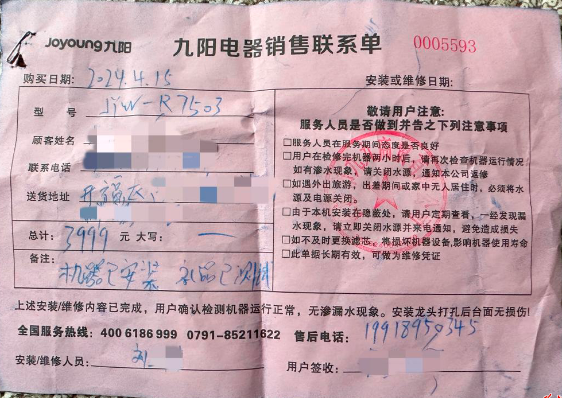 Joyoung九阳 九阳电器销售联系单 0005593
购买日期: 2024.4.15 安装或维修日期:
型 号 JYW-R7503
顾客姓名
联系电话
送货地址
总计: 3999 元 大写: 一
备注:
机器已安装 礼品已
敬请用户注意:
服务人员是否做到并告之下列注意事项
□服务人员在服务期间态度是否良好
□用户在检修完机器两小时后,请再次检查机器运行情况
如有渗水现象,请关闭水源,通知本公司返修
□如遇外出旅游,出差期间或家中无人居住时,必须将水
源及电源关闭。
□由于本机安装在隐蔽处,请用户定期查看,一经发现漏
水现象,请立即关闭水源并来电通知,避免造成损失
□如不及时更换滤芯,将损坏机器设备,影响机器使用寿命
□此单据长期有效,可做为维修凭证
上述安装/维修内容已完成,用户确认检测机器运行正常,无渗漏水现象。安装龙头打孔后台面无损伤!
全国服务热线: 4006186999 0791-85211622 售后电话: 19918950345
安装/维修人员: 刘 用户签收: